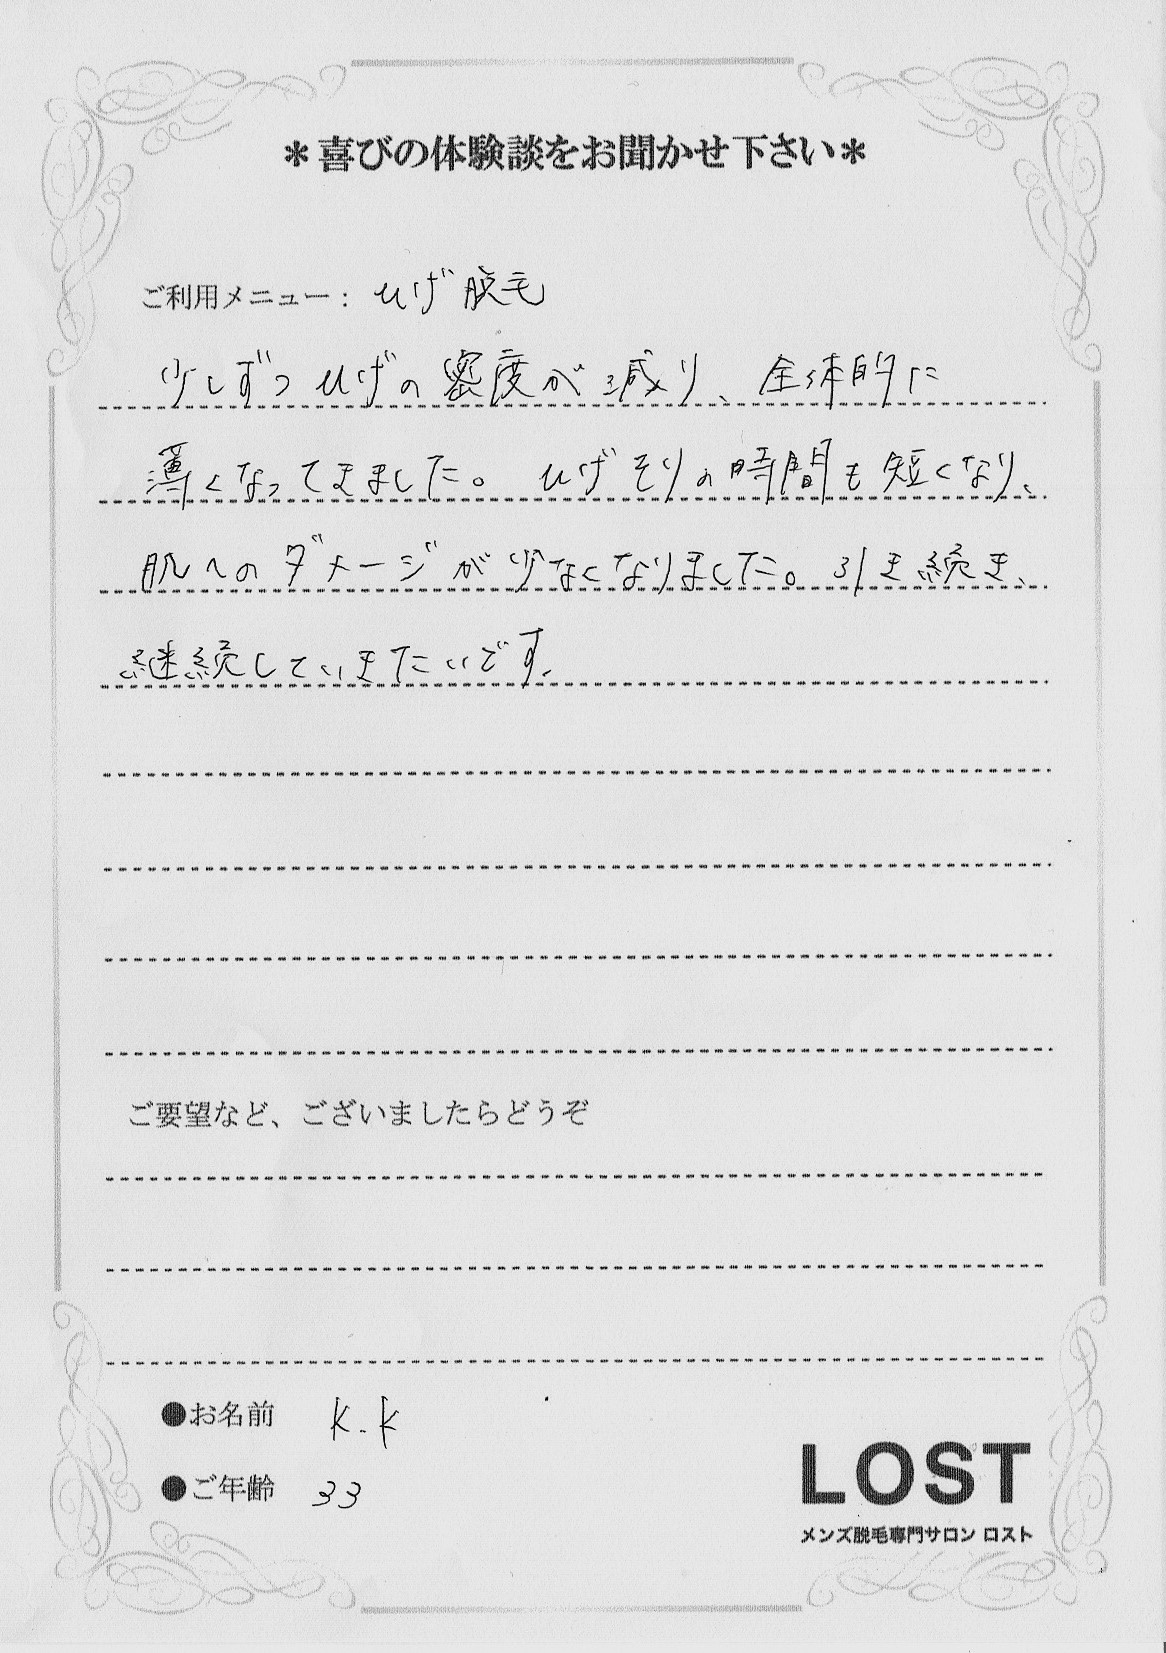 ＊喜びの体験談をお聞かせ下さい＊
ご利用メニュー： ひげ脱毛
少しずつひげの密度が減り、全体的に
薄くなってきました。ひげそりの時間も短くなり、
肌へのダメージが少なくなりました。引き続き、
継続していきたいです。
ご要望など、ございましたらどうぞ
●お名前 K.K
●ご年齢 33
LOST
メンズ脱毛専門サロン ロスト